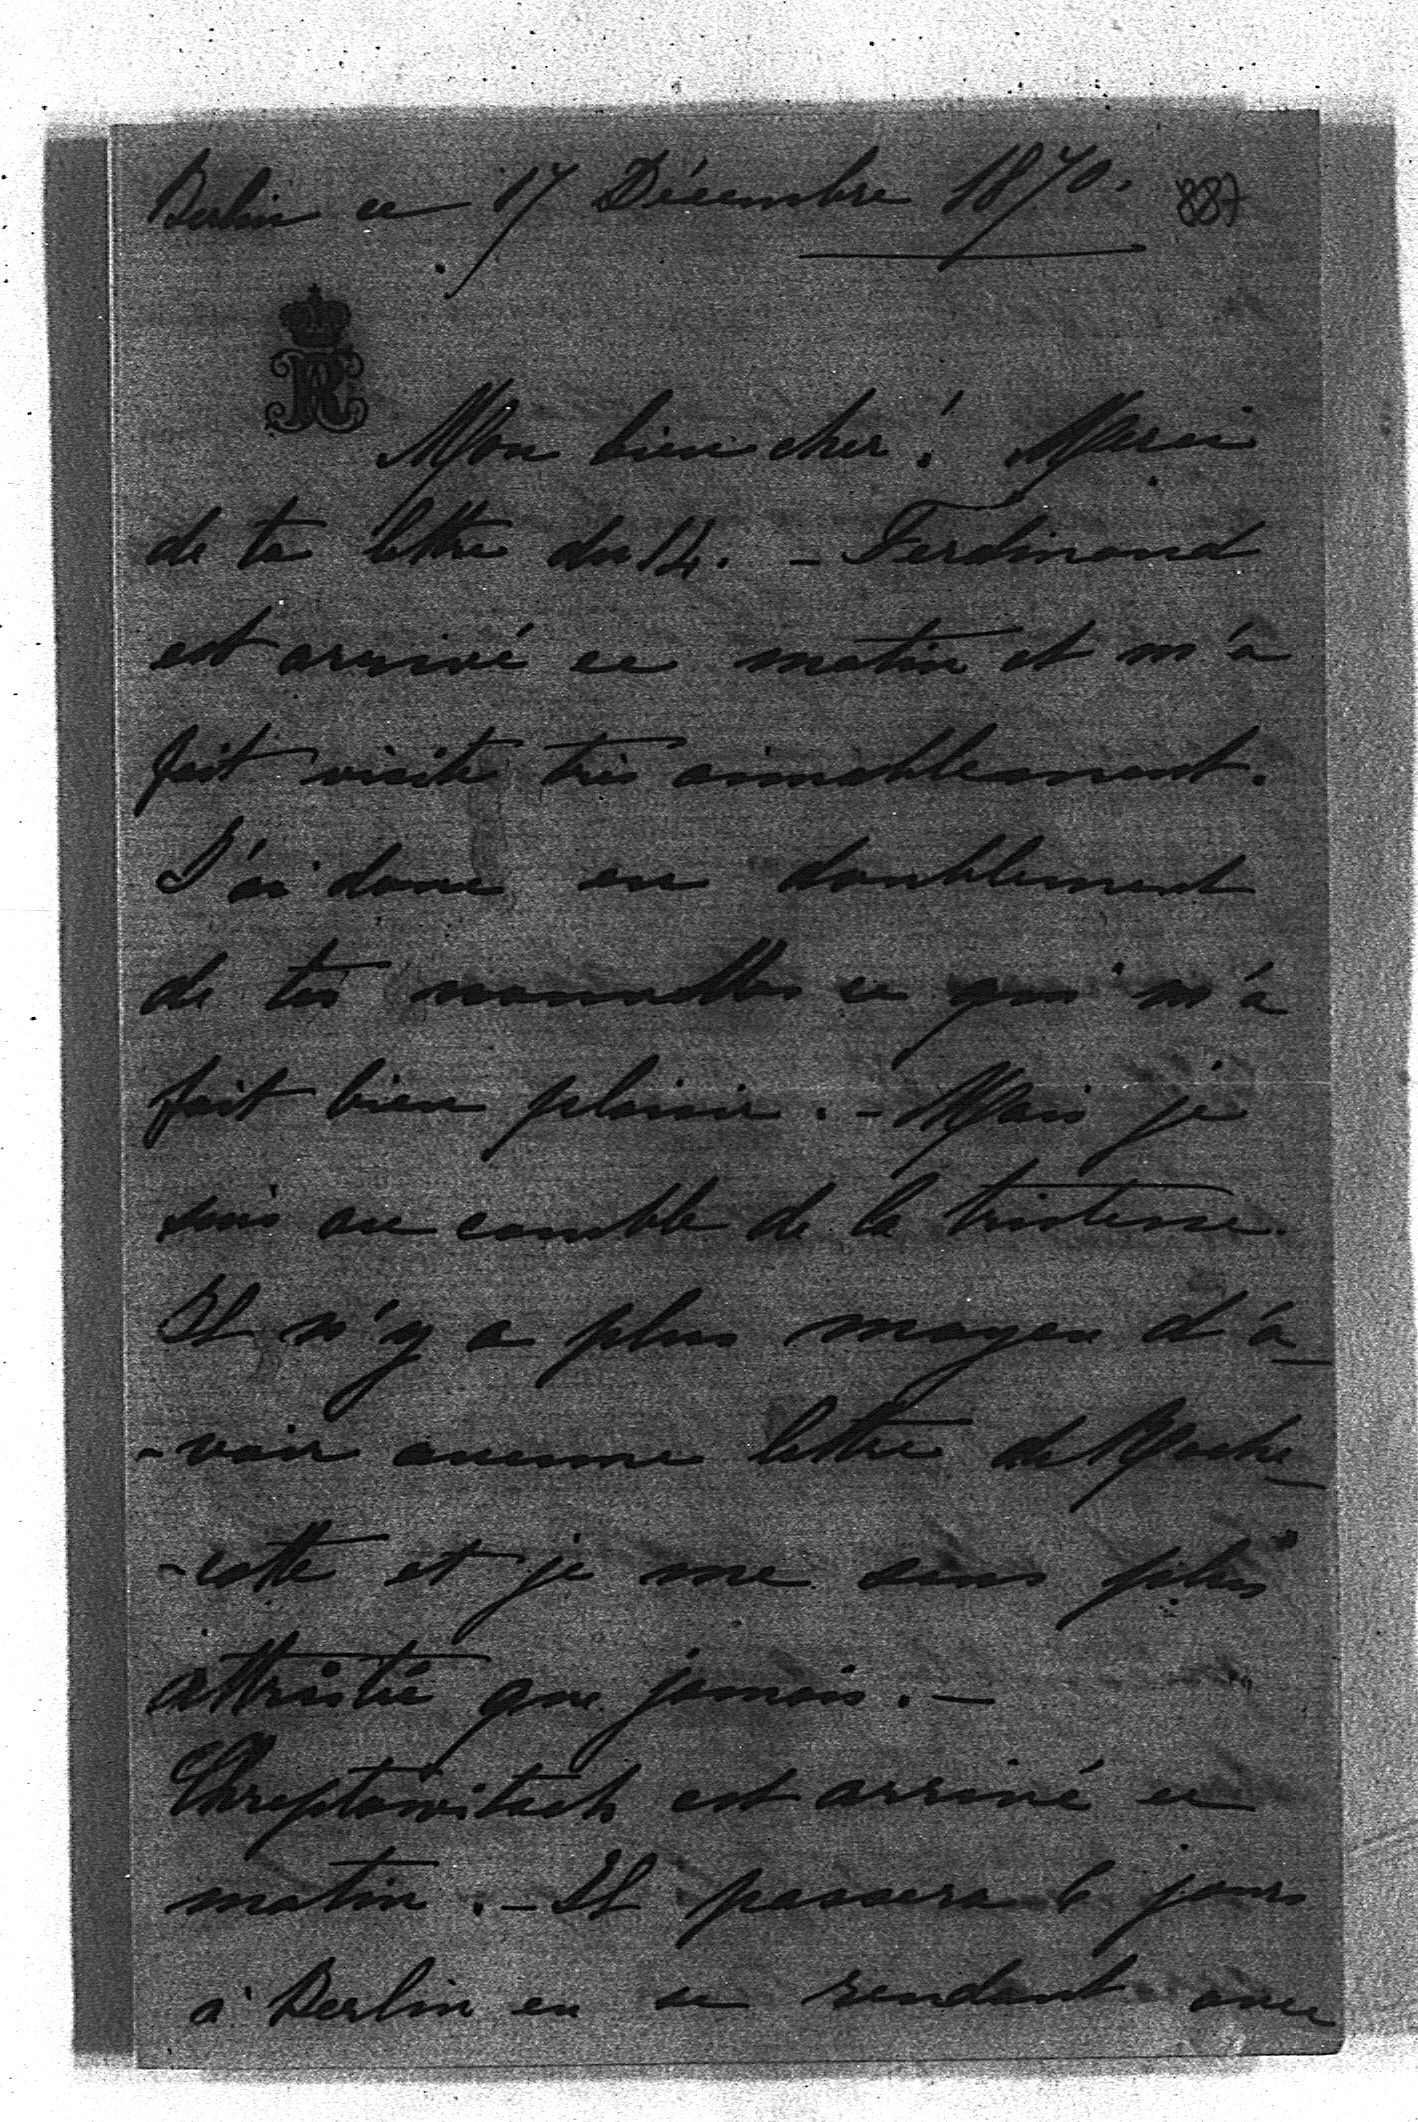 Berlin ce 17 Décembre 1870. 887
R
Mon bien cher! Merci
de ta lettre du 14. - Ferdinand
est arrivé ce matin et m'a
fait visite très aimablement.
J'ai donc eu doublement
de tes nouvelles ce qui m'a
fait bien plaisir. - Mais je
suis au comble de la tristesse.
Il n'y a plus moyen d'a-
-voir aucune lettre de Roche-
-cotte et je me sens plus
attristé que jamais. -
Chreptowitsch est arrivé ce
matin. - Il passera 6 jours
à Berlin en se rendant avec